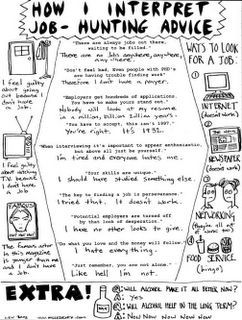 HOW I INTERPRET
JOB-HUNTING ADVICE
"There are always jobs out there,
waiting to be filled."
There are no jobs anywhere, anywhere,
anywhere.
"Don't feel bad. Even people with PHD's
are having trouble finding work"
Therefore I don't have a prayer.
"Employers get hundreds of applications.
You have to make yours stand out."
Nobody will look at my resume
in a million, billion zillion years.
"You have to accept, this isn't 1997."
You're right. It's 1932.
"When interviewing it's important to appear enthusiastic,
but above all just be yourself."
I'm tired and everyone hates me.
"Your skills are unique."
I should have studied something else.
"The key to finding a job is perseverance."
I tried that. It doesn't work.
"Potential employers are turned off
by that look of desperation."
I have no other looks to give.
"Do what you love and the money will follow."
I hate everything.
"Just remember, you are not alone."
Like hell I'm not.
I feel guilty
about going
out because I
don't have a
job.
I feel guilty
about watching
TV because I
don't have a
job
FAMOUS
The famous actor
in this magazine
is younger than me
and I don't have
a job.
WAYS TO LOOK
FOR A JOB:
INTERNET
(doesn't work)
NEWSPAPER
(doesn't work)
NETWORKING
(they're all out of
work too)
FOOD SERVICE
(bingo)
EXTRA!
Q: WILL ALCOHOL MAKE IT ALL BETTER NOW?
A: Yes
Q: WILL ALCOHOL HELP IN THE LONG TERM?
A: Now Now Now Now Now